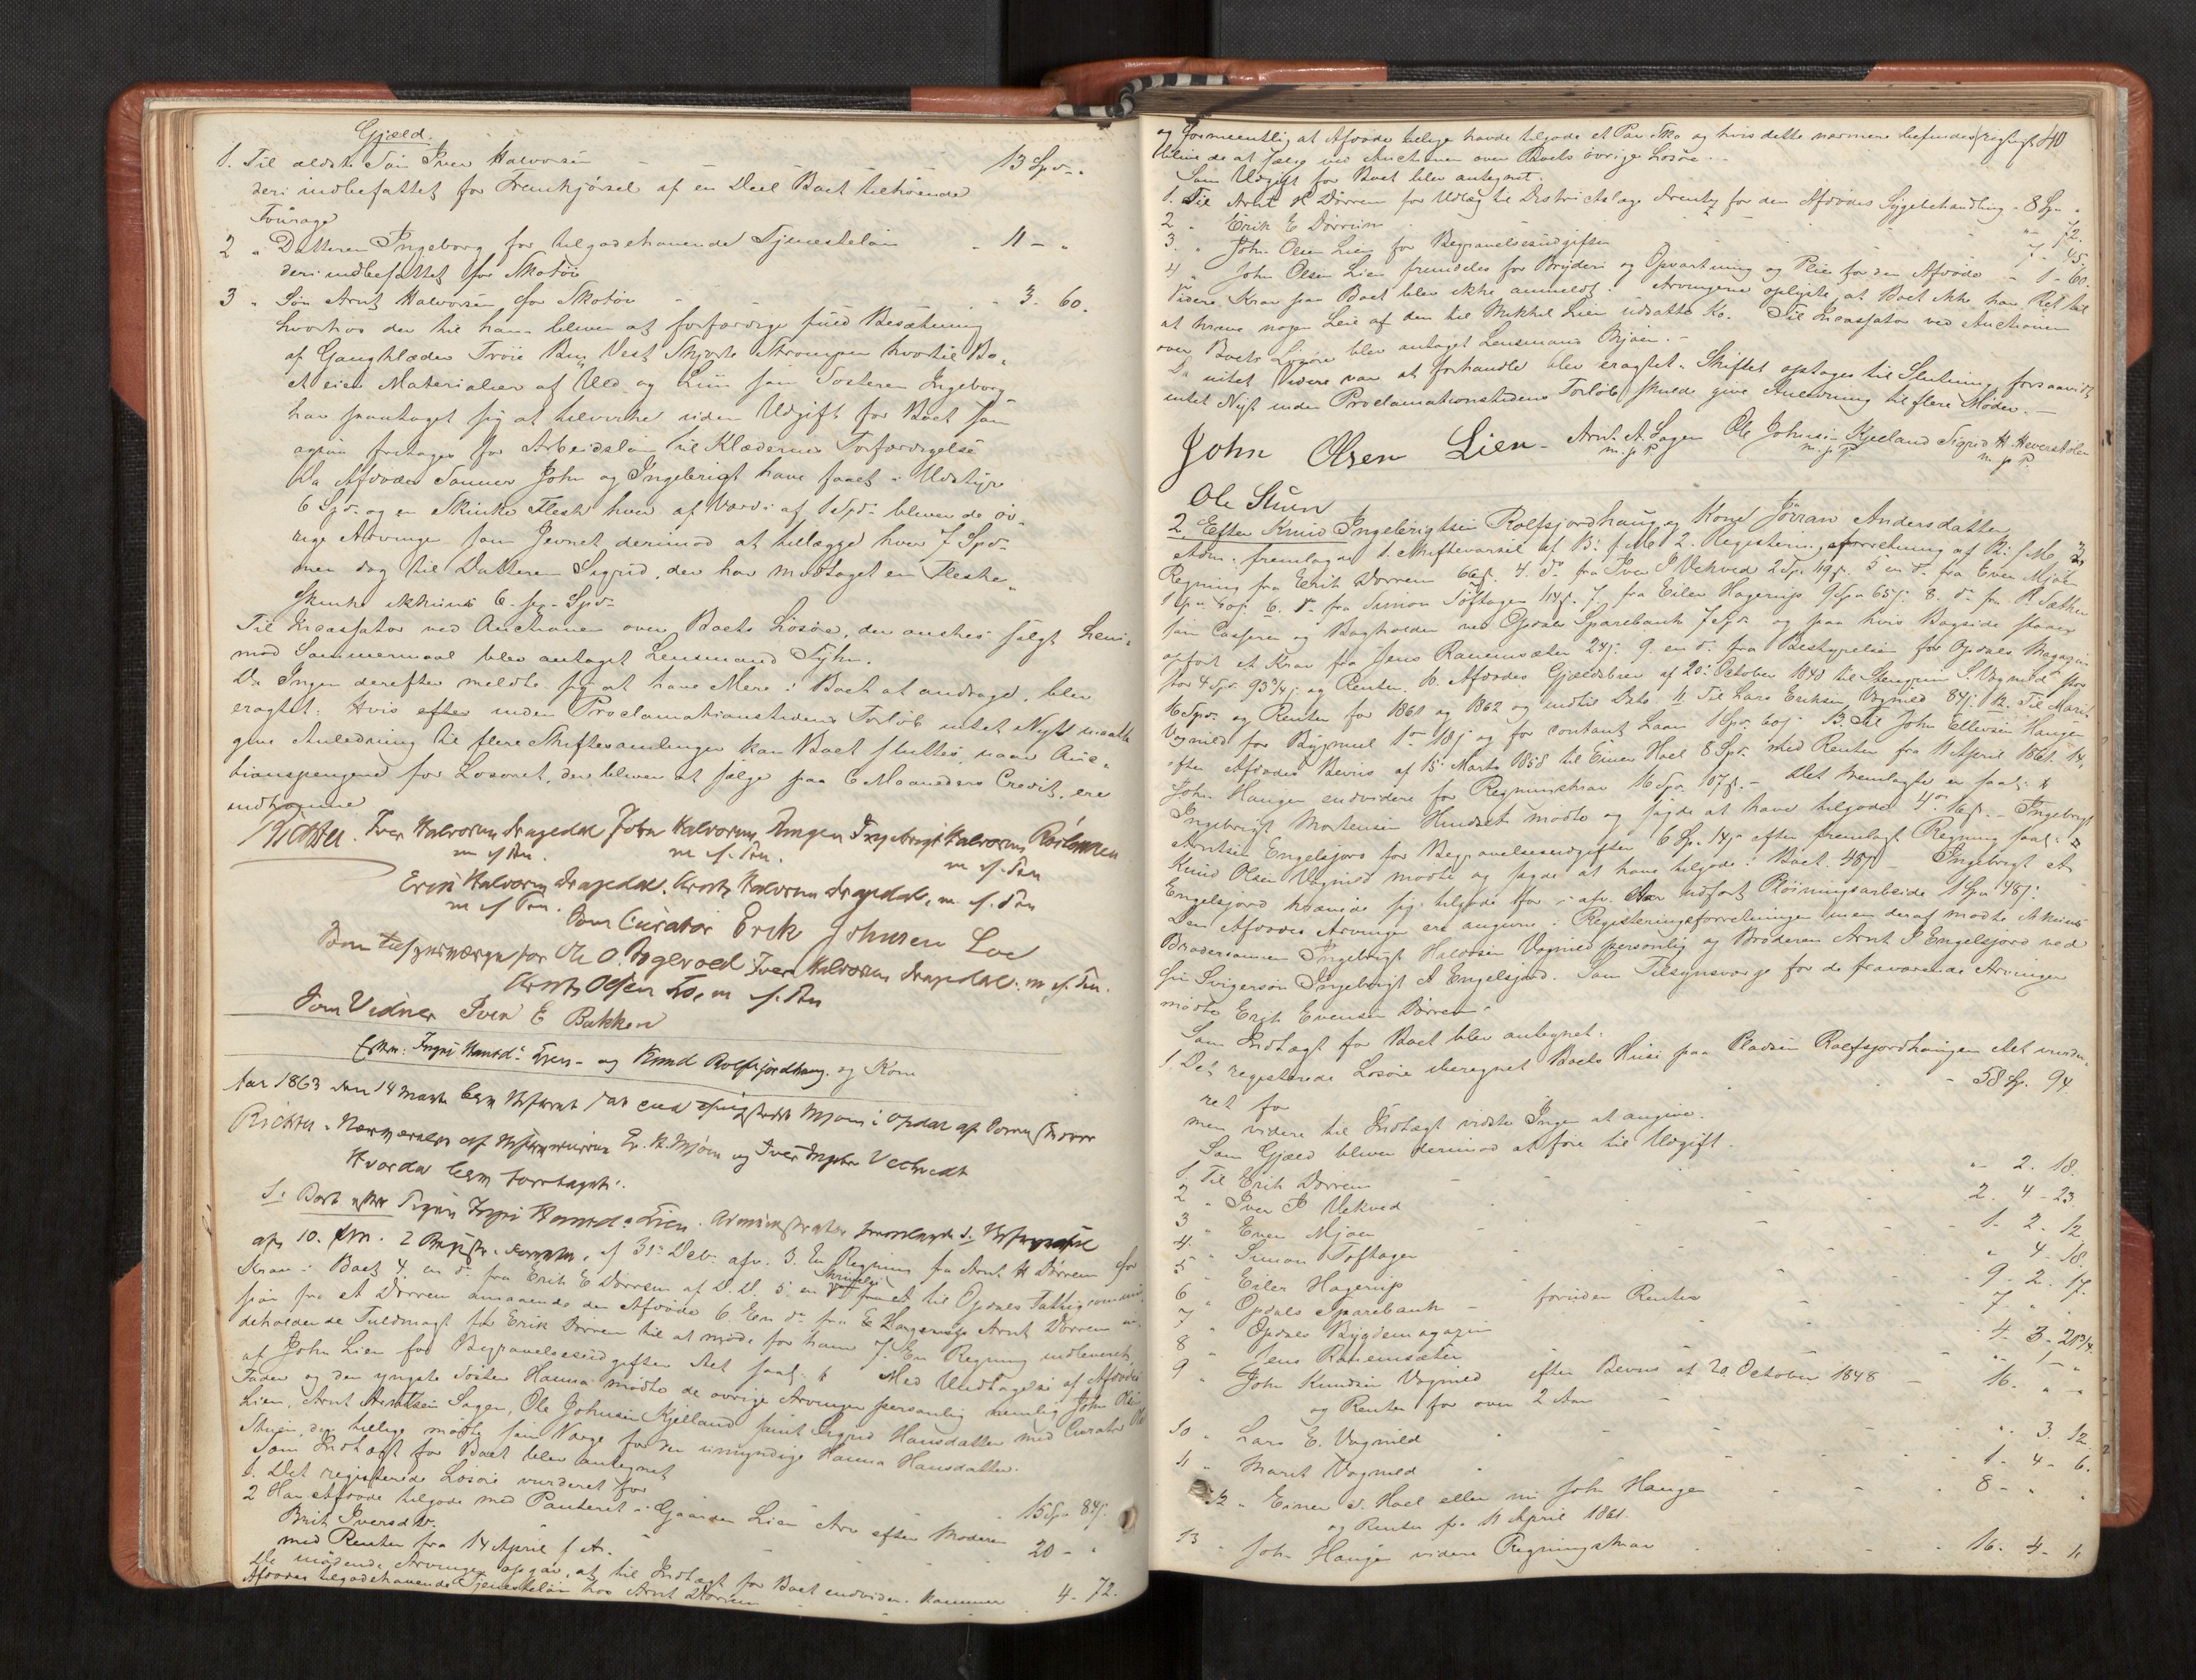 Gjæld.
1. Til ældste Søn Iver Halvorsen - - - 13 Spd. "
deri indbefattet for Fremkjørsel af en Deel Boet tilhørende
Fourage
2 " Datteren Ingeborg for tilgodehavende Tjenesteløn - 11 - "
deri indbefattet for Skotøi
3 " Søn Arnt Halvorsen for Skotøi - - " 3. 60.
hvorhos der til ham bliver at forfærdige fuld Besætning
af Gangklæder Trøie Buxe Vest Skjorte Strømper hvortil Bo-
et eier Materialier af Uld og Liin som Søsteren Ingeborg
har paataget sig at tilvirke uden Udgift for Boet som
ogsaa fritages for Arbeidsløn til Klædernes Forfærdigelse
Da Afdødes Sønner John og Ingebrigt have faaet i Udstyr
6 Spd. og en Skinke Flesk hver af Værdi af 1 Spd. bliver de øv-
rige Arvinger som Jevnet derimod at tillægge hver 7 Spd.
men dog til Datteren Sigrid, der har modtaget en Fleske-
skinke ikkuns 6 - sex - Spd.
Til Incassator ved Auctionen over Boets Løsøre, der ønskes solgt hen-
mod Sommermaal blev antaget Lensmand Tyhn.
Da Ingen derefter meldte sig at have Mere i Boet at andrage, blev
eragtet: Hvis efter inden Proclamationstidens Forløb intet Nyt maatte
give Anledning til flere Skiftesamlinger kan Boet sluttes, naar Auc-
tionspengene for Løsøret, der bliver at sælge paa 6 Maaneders Credit, ere
indkomne
Richter. Iver Halvorsen Drapedal John Halvorsen Ingebrigt Halvorsen
m. f. Pen. m. f. Pen. m. f. Pen
Erik Halvorsen Drapedal. Arnt Halvorsen Drapedal, m. f. Pen
m. f. Pen. Som Curator Erik Johnsen Loe
Som Tilsynsværge for Ole O. Iver Halvorsen Drapedal. m. f. Pen.
Arnt Olsen Loe, m. f. Pen
Som Vidner Iver E Bakken
Efter: Ingri Hansd. Lien - og Knud Rolfsjordhaug og Kone
Aar 1863 den 14 Marts blev Skifteret sat ved Thingstedet Mjøen i Opdal af Sorenskriver
Richter i Nærværelse af E. H. Mjøen og Iver Vechvedt
Hvorda blev foretaget:
1. Boet efter Pigen Ingri Hansd. Lien. Administrator fremlagde 1. Skiftevarsel
af 10. dm. 2 Registr. forretn. af 31te Decbr. afv. 3. En Regning fra Arnt H Dørrem for
Krav i Boet 4. en do. fra Erik E Dørrem af D. D. 5 en Skrivelse til Opdals Fattigcommis-
sion fra A Dørrem angaaende den Afdøde 6. En do. fra E Hagerup Arnt Dørrem in-
deholdende Fuldmagt for Erik Dørrem til at møde for ham 7. En Regning indleveret
af John Lien for Begravelsesudgifter Det faal.: Med Undtagelse af Afdødes
Fader og den yngste Søster Hanna mødte de øvrige Arvinger personlig nemlig John Olsen
Lien, Arnt Arntsen Sagen, Ole Johnsen Kjelland samt Sigrid Hansdatter med Curator Ole
Stuen, der tillige mødte som Værge for den umyndige Hanna Hansdatter.
Som Indtægt for Boet blev antegnet
1. Det registrerede Løsøre vurderet for - 15 Sp. 84 s.
2 Har Afdøde tilgode med Panteret i Gaarden Lien Arv efter Moderen
Brit Iversdtr. - - - - 20 - "
med Renter fra 14 April f. A.
De mødende Arvinger opgav, at til Indtægt for Boet endvidere kommer
Afdødes tilgodehavende Tjenesteløn hos Arnt Dørrem - - 4 - 72.
40
og formeentlig at Afdøde tillige havde tilgode et Par Sko og hvis dette nærmere befindes rigtigt
blive de at sælge ved Auctionen over Boets øvrige Løsøre. -
Som Udgift for Boet blev antegnet.
1. Til Arnt H Dørrem for Udlæg til Districtslæge Arentz for den Afdødes Sygebehandling - 8 Sp. "
2 " Erik E Dørrem - " - 72.
3. " John Olsen Lien for Begravelsesudgifter 7 - 45.
4 " John Olsen Lien fremdeles for Bryderi og Opvartning og Pleie for den Afdøde - 1 - 60.
Videre Krav paa Boet blev ikke anmeldt. Arvingerne oplyste, at Boet ikke har Ret til
at kræve nogen Leie af den til Mikkel Lien udsatte Ko. Til Incassator ved Auctionen
over Boets Løsøre blev antaget Lensmand Mjøen. -
Da intet Videre var at forhandle blev eragtet: Skiftet optages til Slutning, forsaavidt
intet Nyt inden Proclamationstidens Forløb skulde give Anledning til flere Møder. -
John Olsen Lien - Arnt A. Sagen Ole Johnsen Kjelland Sigrid H.
m. f. P. m. f. P. m. f. P.
Ole Stuen
2. Efter Knud Ingebrigtsen Rolfsjordhaug og Kone Jørran Andersdatter
Adm. fremlagde 1. Skiftevarsel af 13. f. M. 2. Registerings forretning af 12. f. M. 3
Regning fra Erik Dørrem 66 s. 4. do fra Iver I Vekved 2 Sp. 19 s. 5 en do. fra Even Mjøen
1 Sp. 60 s. 6. do. fra Simon Toftagen 114 s. 7. fra Eiler Hagerup 9 Sp. 65 s. 8. do. fra R. Sæther
som Casserer og Bogholder ved Opdals Sparebank 7 Spd. og paa hvis Bagside staaer
opført et Krav fra Jens Ranemsæter 24 s. 9. en do. fra Bestyrelsen for Opdals Magazin
stor 4 Sp. 93 3/4 s. og Renter. 10. Afdødes Gjældsbrev af 20. October 1848 til S. Vognild stor
16 Spd. og Renter for 1861 og 1862 og indtil Dato 11 Til Lars Eriksen Vognild 84 s. 12. Til Marit
Vognild for Bygmeel 1 or. 18 s. og for contant Laan 1 Spd. 60 s. 13. Til John Ellevsen Haugen
efter Afdødes Beviis af 15 Marts 1858 til Einer Hoel 8 Spd. med Renter fra 11 April 1861. 14,
John Haugen endvidere for Regningskrav 16 Spd. 107 s. - Det fremlagte er faal.:
Ingebrigt Mortensen Hindset mødte og sagde at have tilgode 4 or. 16 s. - Ingebrigt
Arntsen Engelsjord for Begravelsesudgifter 6 Sp. 14 s. efter fremlagt Regning faal.:
Knud Olsen Vognild mødte og sagde at have tilgode i Boet 48 s. - Ingebrigt A.
Engelsjord krævede sig tilgode for i afv. Aar udført Pløiningsarbeide 1 Sp. 48 s.
Den Afdødes Arvinger ere angivne i Registeringsforretningen men deraf mødte ikkuns
Brodersønnen Ingebrigt Haldosen Vognild personlig og Broderen Arnt I Engelsjord ved
sin Svigersøn Ingebrigt A Engelsjord. Som Tilsynsværge for de fraværende Arvinger
mødte Erik Evensen Dørrem.
Som Indtægt for Boet blev antegnet:
1 Det registerede Løsøre iberegnet Boets Huse paa Pladsen Rolfsjordhaugen Alt vurde-
ret for - - 58 Sp. 94
men videre til Indtægt vidste Ingen at angive.
Som Gjæld bliver derimod at føre til Udgift.
1. Til Erik Dørrem - - - " - 2. 18.
2 " Iver I Vekved - - - 2. 4 - 23
3 " Even Mjøen - - - 1. 2. 12
4. " Simon Toftagen - - - " 4 - 18.
5 " Eiler Hagerup - - - 9 - 2. 17.
6 " Opdals Sparebank - foruden Renter - - 7. " "
7 " Opdals Bygdemagazin - - - 4. 3 - 21 3/4.
8 " Jens Ranemsæter - - - " 1 - "
9 " John Knudsen Vognild efter Beviis af 20 October 1848 - 16. " -
og Renter for over 2 Aar
10 " Lars E. Vognild - - - " 3. 12.
11 " Marit Vognild - - - 1 - 4 - 6.
12 " Einer S. Hoel eller nu John Haugen - - 8 - " "
og Renter fra 11 April 1861.
13 " John Haugen videre Regningskrav - - - 16. 4. 11